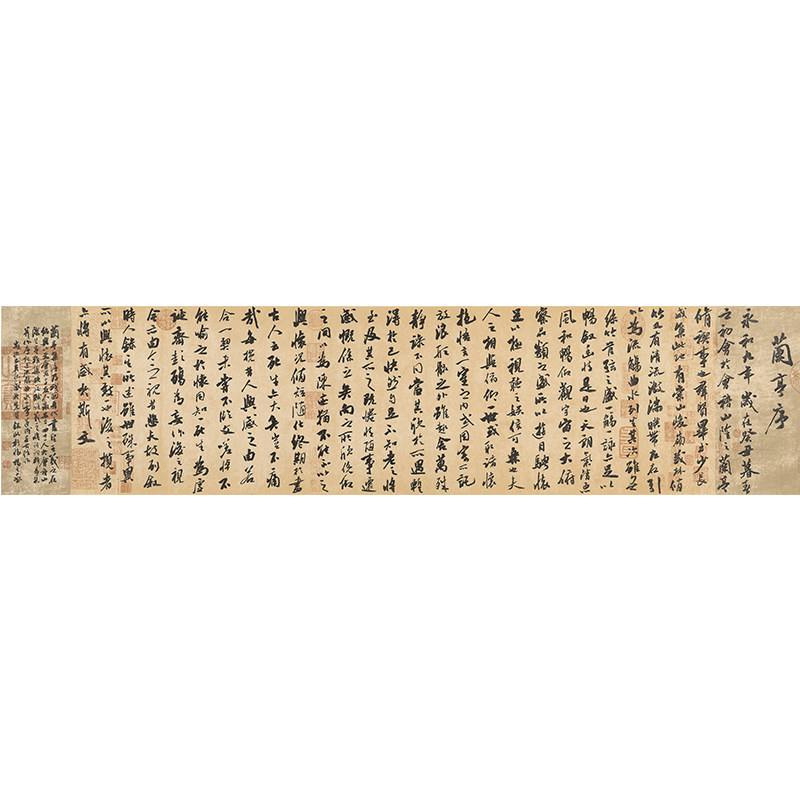 蘭亭序
永和九年歲在癸丑暮春
之初會於會稽山陰之蘭亭
脩禊事也羣賢畢至少長
咸集此地有崇山峻嶺茂林脩
竹又有清流激湍暎帶左右引
以為流觴曲水列坐其次雖無
絲竹管絃之盛一觴一詠亦足以
暢敘幽情是日也天朗氣清惠
風和暢仰觀宇宙之大俯
察品類之盛所以遊目騁懷
足以極視聽之娛信可樂也夫
人之相與俯仰一世或取諸懷
抱悟言一室之內或因寄所託
放浪形骸之外雖趣舍萬殊
靜躁不同當其欣於所遇輒
得於己快然自足不知老之將
至及其所之既惓情隨事遷
感慨係之矣向之所欣俛仰
之間以為陳迹猶不能不以之
興懷況脩短隨化終期於盡
古人云死生亦大矣豈不痛
哉每攬昔人興感之由若
合一契未嘗不臨文嗟悼不
能喻之於懷固知一死生為虛
誕齊彭殤為妄作後之視
今亦由今之視昔悲夫故列敘
時人錄其所述雖世殊事異
所以興懷其致一也後之攬者
亦將有感於斯文